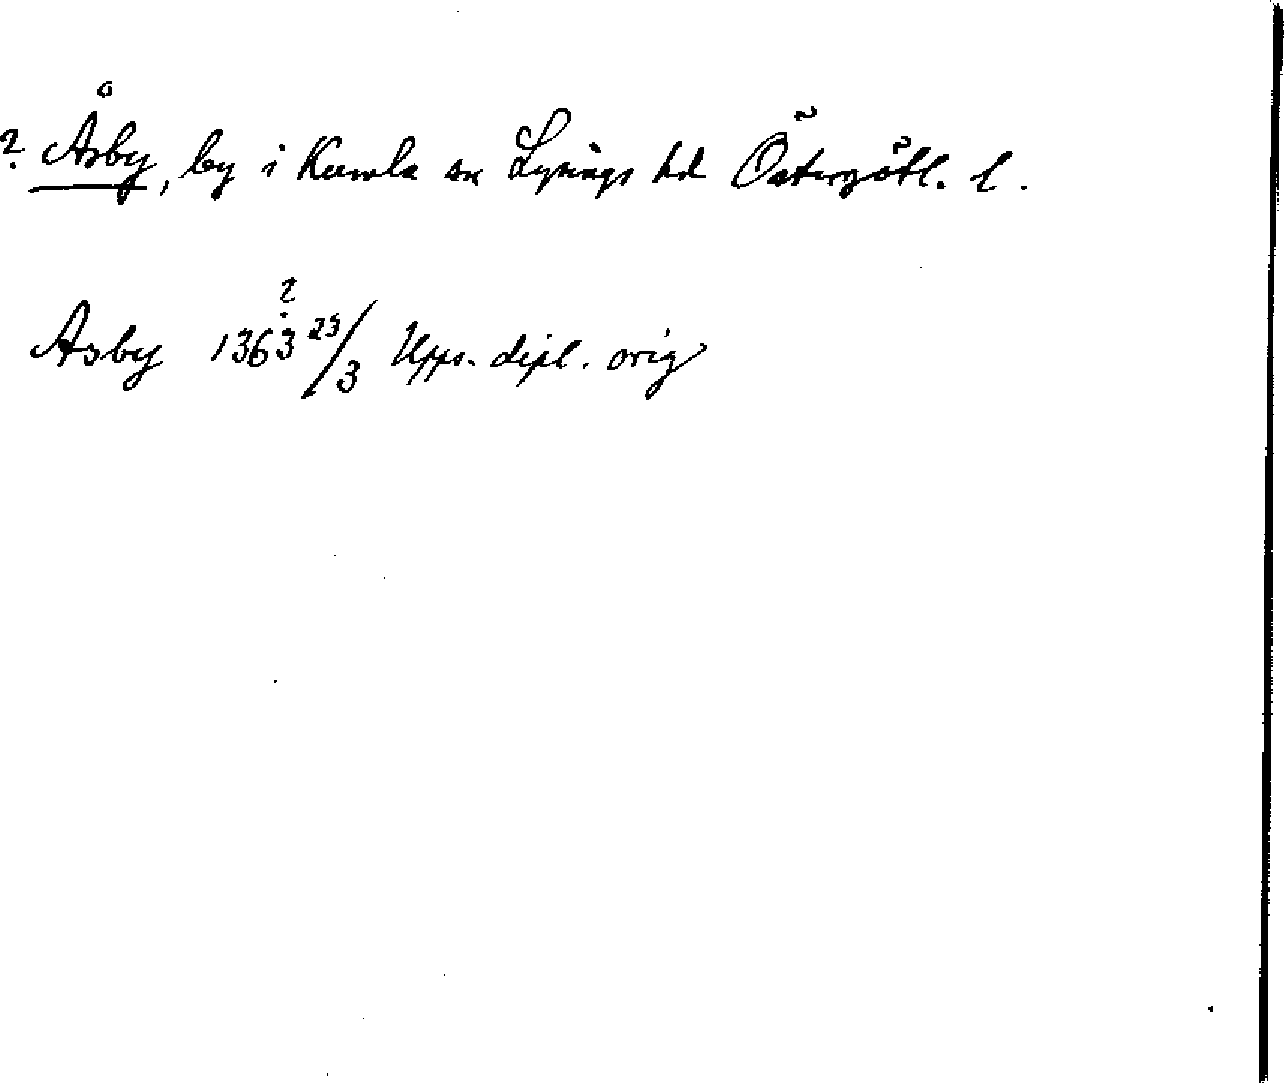 ? Åsby, by i Kumla sn Lysings hd Östergötl. l.
Asby 1363? 25/3 Upps. dipl. orig